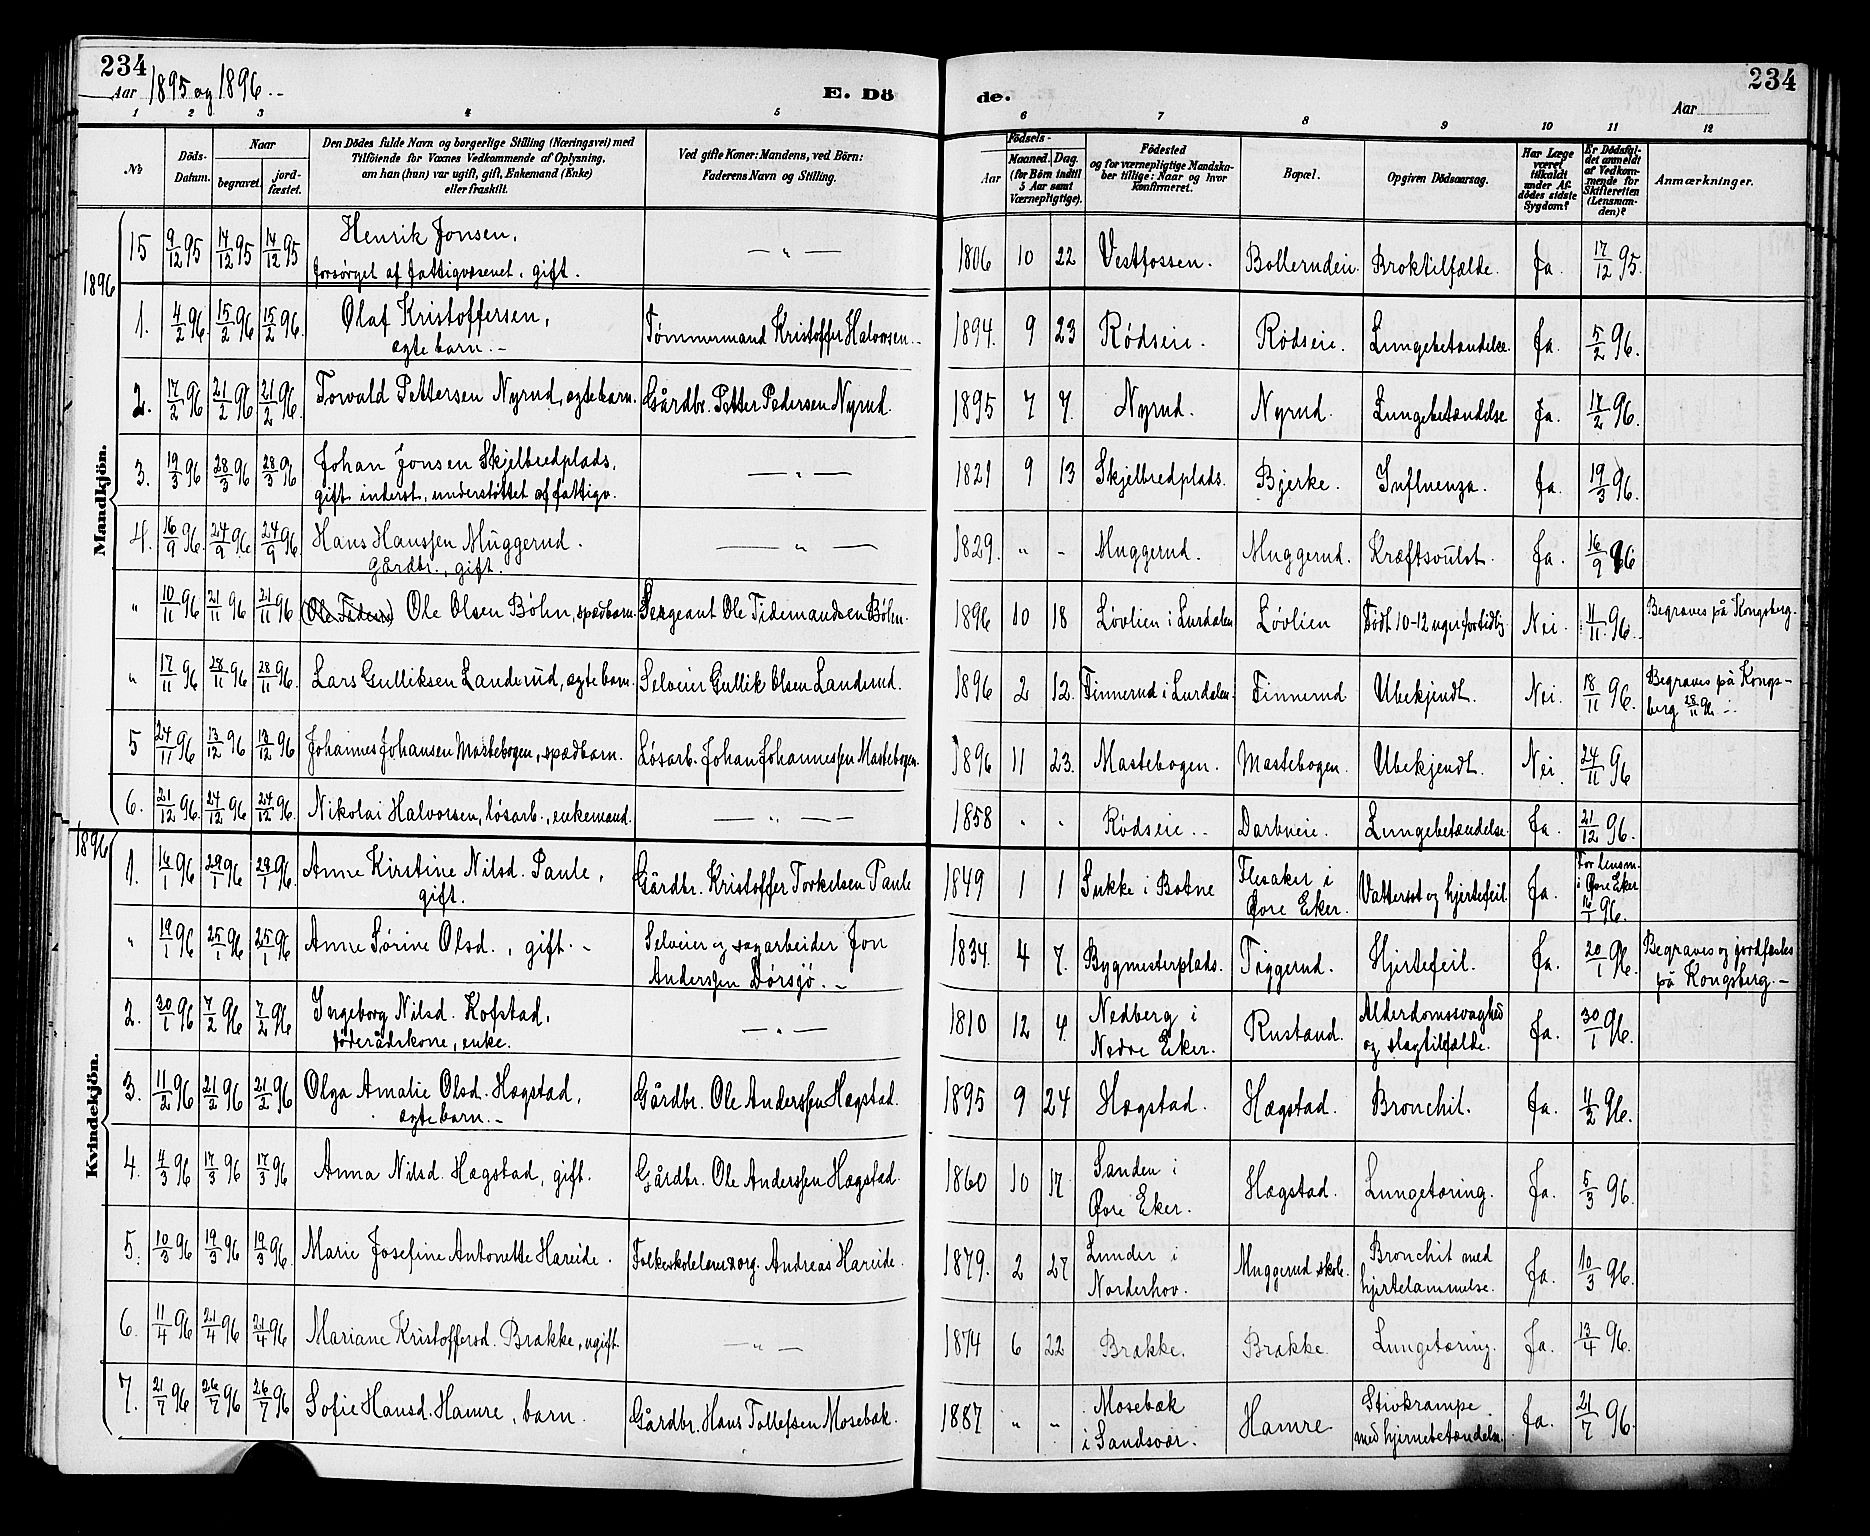 234
Aar 1895 og 1896.
E. Dö
de.
Aar
234
1 2 3 4 5 6 7 8 9 10 11 12
No
Döds-Datum.
Naar
begravet.
jord-fæstet.
Den Dödes fulde Navn og borgerlige Stilling (Næringsvei) med
Tilföiende for Voxnes Vedkommende af Oplysning,
om han (hun) var ugift, gift, Enkemand (Enke)
eller fraskilt.
Ved gifte Koner: Mandens, ved Börn:
Faderens Navn og Stilling.
Födsels-
Aar
Maaned. Dag.
(for Börn indtil
5 Aar samt
Værnepligtige).
Födested
og for værnepligtige Mandskaber tillige: Naar og hvor
Konfirmeret.
Bopæl.
Opgiven Dödsaarsag.
Har Læge været tilkaldt under Afdödes sidste Sygdom?
Er Dödsfaldet anmeldt af Vedkommende for Skifteretten (Lensmanden)?
Anmærkninger.
Mandkjön.
15 9/12 95 14/12 95 14/12 95 Henrik Jonsen, forsörget af fattigvæsenet, gift. — „ — 1806 10 22 Vestfossen. Bollerudeie. Broktilfælde. Ja. 17/12 95.
1896
1. 4/2 96 15/2 96 15/2 96. Olaf Kristoffersen, ægte barn. – Tømmermand Kristoffer Halvorsen. – 1894. 9 23 Rødseie. Rødseie. Lungebetændelse. Ja. 5/2 96.
2. 17/2 96 21/2 96 21/2 96. Torvald Pettersen Nyrud, ægte barn. Gårdbr. Petter Pedersen Nyrud. 1895 7 7. Nyrud. Nyrud. Lungebetændelse Ja. 17/2 96.
3. 19/3 96 28/3 96 28/3 96 Johan Jonsen Skjelbredplads, gift inderst, understøttet af fattigv. — „ — 1821 9 13 Skjelbredplads. Bjerke. Influenza. Ja. 19/3 96.
4. 16/9 96. 24/9 96 24/9 96 Hans Hanssen Muggerud. Gårdbr., gift. — „ — 1829. „ - Muggerud. Muggerud. Kræftsvulst. Ja. 16/9 96
„ 10/11 96 21/11 96 21/11 96 (Ole Tidem) Ole Olsen Bøhn, spædbarn. Sergeant Ole Tidemandsen Bøhn. 1896 10 18 Løvlien i Lurdalen Løvlien Født 10-12 uger fortidlig Nei. 11/11 96. Begraves på Kongsberg.
„ 17/11 96 28/11 96 28/11 96. Lars Gulliksen Landerud, ægte barn. Selveier Gullik Olsen Landerud. 1896 2 12. Finnerud i Lurdalen. Finnerud Ubekjendt. Nei. 18/11 96. Begraves på Kongsberg 28/11 96
5 24/11 96 13/12 96 13/12 96 Johannes Johansen Mastebogen, spædbarn. Løsarb. Johan Johannessen Mastebogen. 1896 11 23. Mastebogen. Mastebogen. Ubekjendt. Nei. 24/11 96
6. 21/12 96. 24/12 96 24/12 96. Nikolai Halvorsen, løsarb., enkemand. — „ — 1858 „ „ Rødseie. – Darbueie. Lungebetændelse Ja. 21/12 96.
1896
Kvindekjön.
1. 16/1 96 29/1 96 29/1 96 Anne Kirstine Nilsd. Paule, gift. Gårdbr. Kristoffer Torkelsen Paule 1849 1 1 Sukke i Botne Flesaker i Øvre Eker. Vattersot og hjertefeil. Ja. For lensm. i Øvre Eker 16/1 96.
„ 19/1 96 25/1 96 25/1 96. Anne Sørine Olsd., gift. – Selveier og sagarbeider Jon Anderssen Dørsjø. – 1834. 4 7. Bygmesterplads. Tiggerud. Hjertefeil. Ja. 20/1 96. Begraves og jordfæstes på Kongsberg. –
2. 30/1 96 7/2 96 7/2 96 Ingeborg Nilsd. Kofstad, føderådskone, enke. — „ — 1810 12 4. Nedberg i Nedre Eker. Rustand. Alderdomssvaghed og slagtilfælde. Ja. 30/1 96.
3. 11/2 96 21/2 96 21/2 96 Olga Amalie Olsd. Hægstad, ægte barn. – Gårdbr. Ole Anderssen Hægstad. 1895 9 24 Hægstad. Hægstad. Bronchit. Ja. 11/2 96.
4. 4/3 96 17/3 96 17/3 96 Anna Nilsd. Hægstad, gift. Gårdbr. Ole Anderssen Hægstad. 1860 10 17 Sanden i Øvre Eker. Hægstad. Lungetæring. Ja. 5/3 96.
5. 10/3 96 19/3 96 19/3 96. Marie Josefine Antonette Hareide. Folkeskolelærer og org. Andreas Hareide. 1879. 2 27 Lunder i Norderhov. Muggerud skole. Bronchit med hjertelammelse. Ja. 10/3 96.
6. 11/4 96 21/4 96 21/4 96 Mariane Kristoffersd. Brække, ugift. — „ — 1874 6 22 Brække. Brække. Lungetæring. Ja. 13/4 96.
7. 21/7 96 26/7 96 26/7 96 Sofie Hansd. Hamre, barn. Gårdbr. Hans Tollefsen Mosebæk. 1887 „ „ Mosebæk i Sandsvær. Hamre Stivkrampe med hjernebetændelse. Ja. 21/7 96.